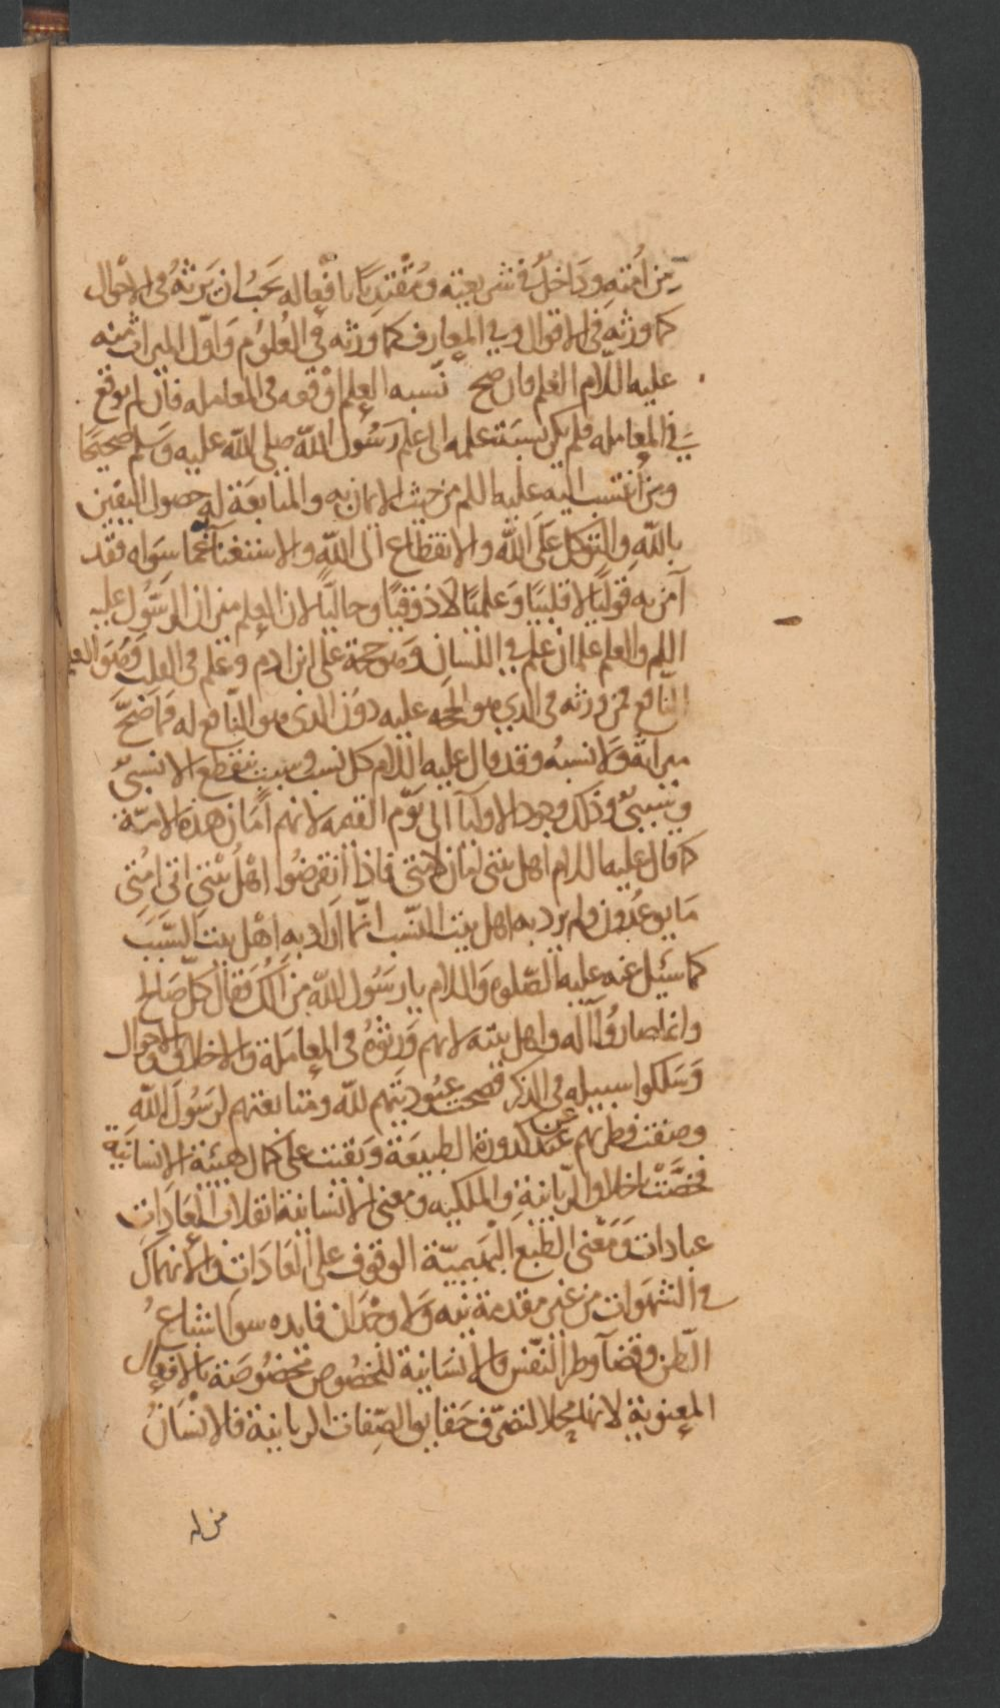 من أمته وداخلٌ في شريعته ومُقْتدِيًا بافعاله يَجبُ ان يَرثهُ في الاحْوال
كما ورثه في الاقوال وفي المعارف كما ورثه في العُلوم وَاوّل الميراث منه
عليه اللام العلم فان صح نسبه العلم اوقعه في المعامله فان لم توقع
في المعامله فلم يكن نسبَة علمه الى علم رَسُول الله صلى الله عليه وَسَلم صحيحًا
ومن انتسب اليه عليه اللم من حيث الايمان به والمتابعَة له حصول اليقين
بالله والتوكل عَلَى الله والانقطاع الى الله والاستغنآ عما سوَاه فقد
آمن به قوليًّا لا قلبيًا وَعلميًا لا ذوقيًا وحاليًا لان العلم ميراث الرسُول عليه
اللم والعلم علمان علم في اللسان وَهو حجة على ابن ادم وعلم في القلب وَهُوَ العلم
النافع فمن ورثه في الذي هو الحجه عليه دوُن الذي هو النافع له فما صَحَّ
ميراثه وَلا نسبهُ وقد قال عليه اللام كل نسب وسبب ينقطع الا نسبي
وسببي وذلك وجود الاوليآ الى يَوْم القيمه لانهم اَمان هذه الامّة
كما قال عليه اللام اهل بيتي امان لامتي فاذا انقرضُوا اهْلُ بيْتي اتى امتي
مَا يوعدُون ولم يرد به اهل بيت النسَب انّما اراد به اهْل بيت السَّبَب
كما سُئِل عنه عليه الصّلوة وَاللام يا رسُول الله من آلك فقال كلّ صَالح
وانما صارُوا آله واهل بيته لانهم وَرثوهُ في المعامَلة والاخلاق والاحوال
وَسَلكوا سبيله في الذكر فصحت عبُوديّتهم لله ومتابعتهم لرَسُول الله
وصفت فطرتهم عن كدورة الطبيعَة وَبقيت على كمال هيئة الانسانية
فخصَّتْ باخلاق الربّانيّة والملكيه ومعنى الانسانية انقلاب العَادَات
عبادات وَمَعْنى الطبع البَهيميّة الوقوف على العَادَات والانهماك
في الشهوَات من غير مقدمة نيه وَلا وجْدَان فايده سوى اشباع
البطن وقضآ وطر النفس والانسَانية للخصُوص مخصُوصَة بالافعال
المعنوية لانها محلا لتصرّف حَقايق الصِّفات الربانية فالانْسَانُ
من له